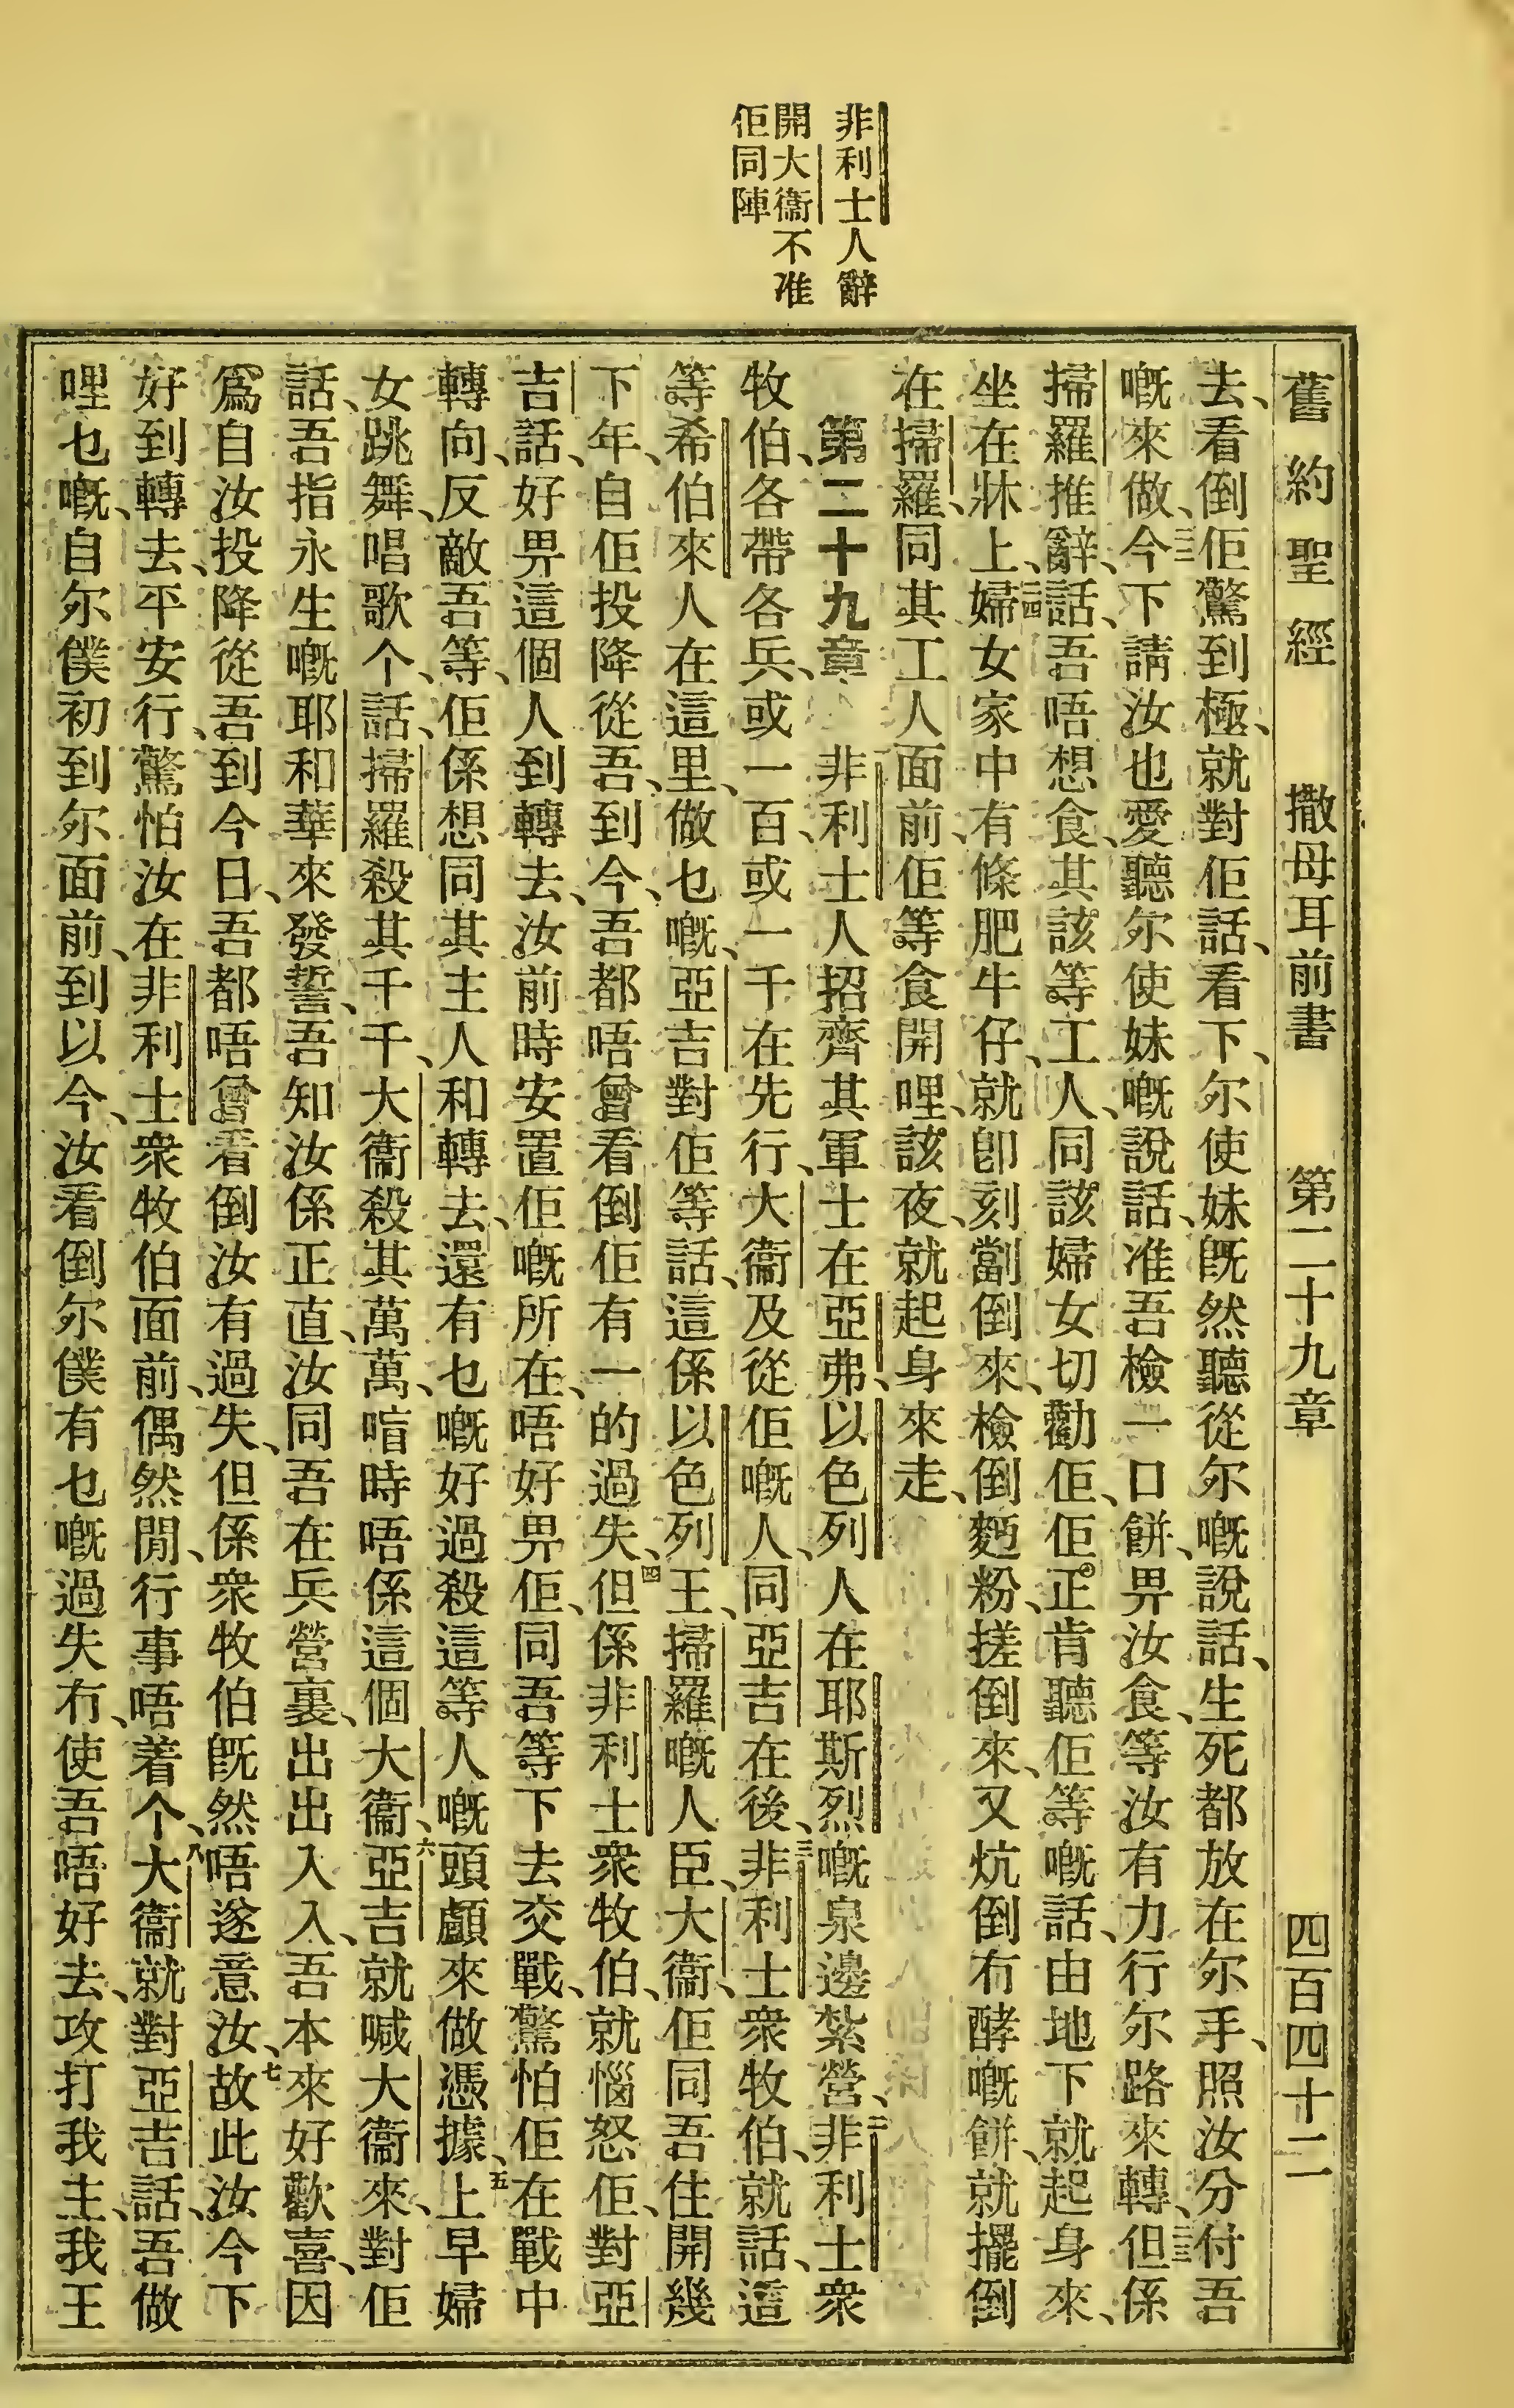 非利士人辭
開大衞不准
佢同陣
舊約聖經 撒母耳前書 第二十九章 四百四十二
去、看倒佢驚到極、就對佢話、看下、尔使妹旣然聽從尔嘅說話、生死都放在尔手、照汝分付吾
嘅來做、三今下請汝也愛聽尔使妹嘅說話、准吾檢一口餅、畀汝食、等汝有力行尔路來轉、三但係
掃羅推辭、話、吾唔想食、其該等工人、同該婦女切勸佢、佢正肯聽佢等嘅話、由地下就起身來、
坐在牀上、婦女家中有條肥牛仔、就卽刻劏倒來、檢倒麪粉、搓倒來、又炕倒冇酵嘅餅、就擺倒
在掃羅、同其工人面前、佢等食開哩、該夜、就起身來走、
第二十九章 非利士人招齊其軍士在亞弗、以色列人在耶斯烈嘅泉邊紮營、二非利士衆
牧伯、各帶各兵、或一百、或一千在先行、大衞及從佢嘅人、同亞吉在後、三非利士衆牧伯、就話、這
等希伯來人在這里、做乜嘅、亞吉對佢等話、這係以色列王、掃羅嘅人臣、大衞、佢同吾住開幾
下年、自佢投降從吾、到今、吾都唔曾看倒佢有一的過失、四但係非利士衆牧伯、就惱怒佢、對亞
吉話、好畀這個人到轉去、汝前時安置佢嘅所在、唔好畀佢、同吾等下去交戰、驚怕佢在戰中
轉向、反敵吾等、佢係想同其主人和轉去、還有乜嘅好過殺這等人嘅頭顱來做憑據、五上早婦
女跳舞、唱歌个、話、掃羅殺其千千、大衞殺其萬萬、喧時唔係這個大衞、六亞吉就喊大衞來、對佢
話、吾指永生嘅耶和華來發誓、吾知汝係正直、汝同吾在兵營裏、出出入入、吾本來好歡喜、因
爲自汝投降從吾、到今日、吾都唔曾看倒汝有過失、但係衆牧伯旣然唔遂意汝、七故此汝今下
好到轉去、平安行、驚怕汝在非利士衆牧伯面前、偶然閒、行事唔着个、八大衞就對亞吉話、吾做
哩乜嘅、自尔僕初到尔面前、到以今、汝看倒尔僕有乜嘅過失冇、使吾唔好去、攻打我主、我王